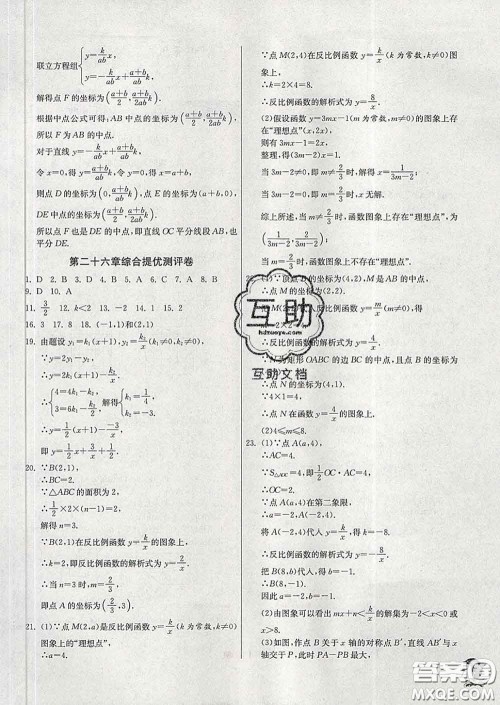 联立方程组{y=k/(ab) x, y=-k/(ab) x+(a+b)/(ab) k
解得点 F 的坐标为((a+b)/2, (a+b)/(2ab) k)
根据中点公式可得:AB 中点的坐标为((a+b)/2, (a+b)/(2ab) k)
所以 F 为 AB 的中点.
对于直线 y=-k/(ab) x+(a+b)/(ab) k,
令 x=0,得 y=(a+b)/(ab) k,令 y=0,得 x=a+b
则点 D 的坐标为(0, (a+b)/(ab) k),点 E 的坐标为(a+b,0),
DE 中点的坐标为((a+b)/2, (a+b)/(2ab) k),所以直线 OC 平分线段 AB,也
平分 DE.
第二十六章综合提优测评卷
1. D 2. B 3. D 4. D 5. C 6. A 7. A 8. B
9. D 10. A
11. 3/2 12. k<2 13. -2 14. 4 15. -4
16. 3 17. 8 18. (-1,1)和(2,1)
19. 由题设 y₁=k₁(x+1),y₂=k₂/x
∵y=y₁-y₂,
∴y=k₁(x+1)-k₂/x.
∴{4=4k₁-k₂/3, 3=6k₁-k₂/5. 解得{k₁=1/4, k₂=-3.
∴y=1/4(x+1)--3/x,
即 y=1/4(x+1)+3/x
20. ∵B(2,1),
∴BC=2.
∵△ABC 的面积为 2,
∴1/2×2×(n-1)=2.
解得 n=3.
∵B(2,1)在反比例函数 y=k/x 的图象上,
∴k=2,即反比例函数的解析式为 y=2/x.
∴当 n=3 时,m=2/3,
即点 A 的坐标为(2/3,3).
21. (1)∵点 M(2,a)是反比例函数 y=k/x(k 为常数,k≠0)
图象上的“理想点”,
∴a=4.
∵点 M(2,4)在反比例函数 y=k/x(k 为常数,k≠0)图
象上,
∴k=2×4=8.
∴反比例函数的解析式为 y=8/x.
(2)假设函数 y=3mx-1(m 为常数,m≠0)的图象上存
在“理想点”(x,2x),
则有 3mx-1=2x.
整理,得(3m-2)x=1.
当 3m-2≠0,即 m≠2/3 时,解得 x=1/(3m-2)
当 3m-2=0,即 m=2/3 时,x 无解.
综上所述,当 m≠2/3 时,函数图象上存在“理想点”,
当 m=2/3 时,函数图象上不存在“理想点”.
∴点 N 的坐标为(4,1).
∵4×1=4.
∴点 N 在函数 y=k/x 的图象上.
(2)4≤m≤8.
23. (1)∵点 A(a,4),
∴AC=4.
∵S△AOC=4,即 1/2 OC·AC=4.
∴OC=2.
∵点 A(a,4)在第二象限,
∴a=-2,A(-2,4).
将 A(-2,4)代入 y=k/x,得 k=-8.
∴反比例函数的解析式为 y=-8/x.
把 B(8,b)代入,得 b=-1.
因此 a=-2,b=-1.
(2)由图象可以看出 mx+n<k/x 的解集为-2<x<0 或
x>8.
(3)如图,作点 B 关于 x 轴的对称点 B′,直线 AB′与 x
轴交于 P,此时 PA-PB 最大.
互助
hdzuoye.com
互助文档
答案圈
MXQE.COM